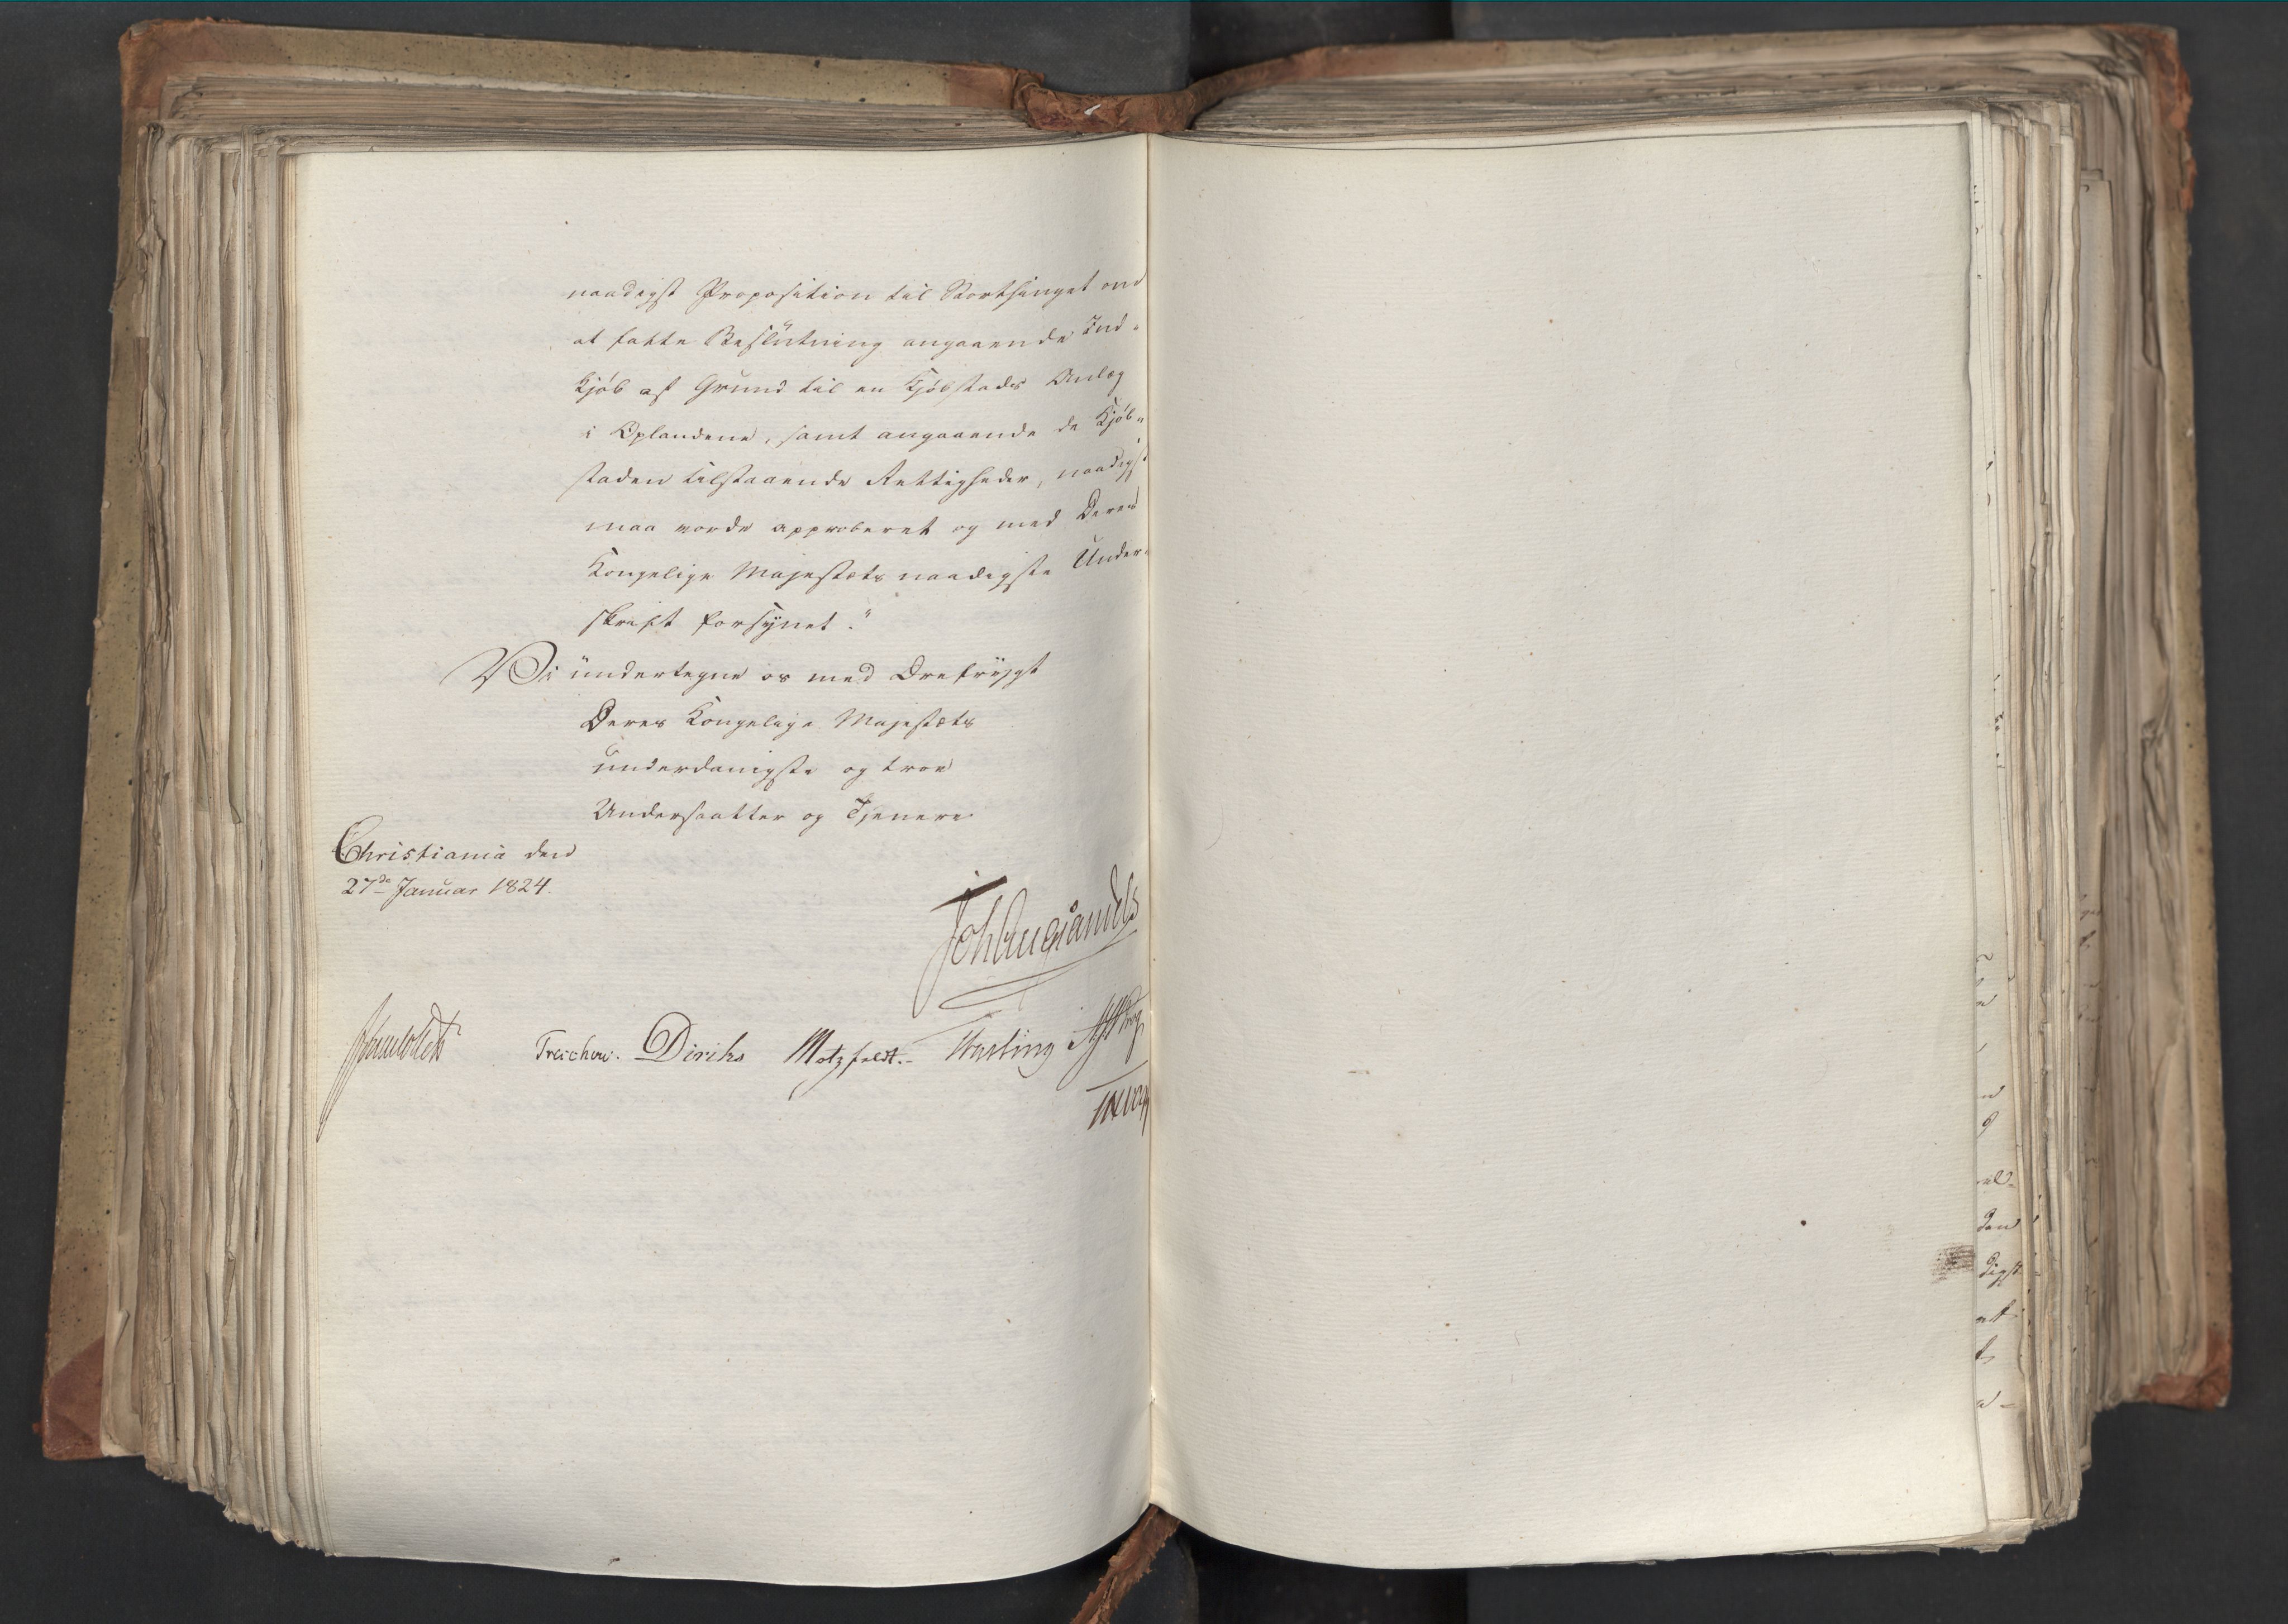 naadigst Proposition til Storthinget om
at fatte Beslutning angaaende Ind-
kjøb af Grund til en Kjøbstads Anlæg
i Oplandene, samt angaaende de Kjøb-
staden tilstaaende Rettigheder, naadigst
maa vorde approberet og med Deres
Kongelige Majestæts naadigste Under-
skrift forsynet."
Vi undertegne os med Ærefrygt
Deres Kongelige Majestæts
underdanigste og troe
Undersaatter og Tjenere
Christiania den
27de Januar 1824.
Joh Aug Sandels
Treschow. Diriks Motzfeldt.-
den
digst